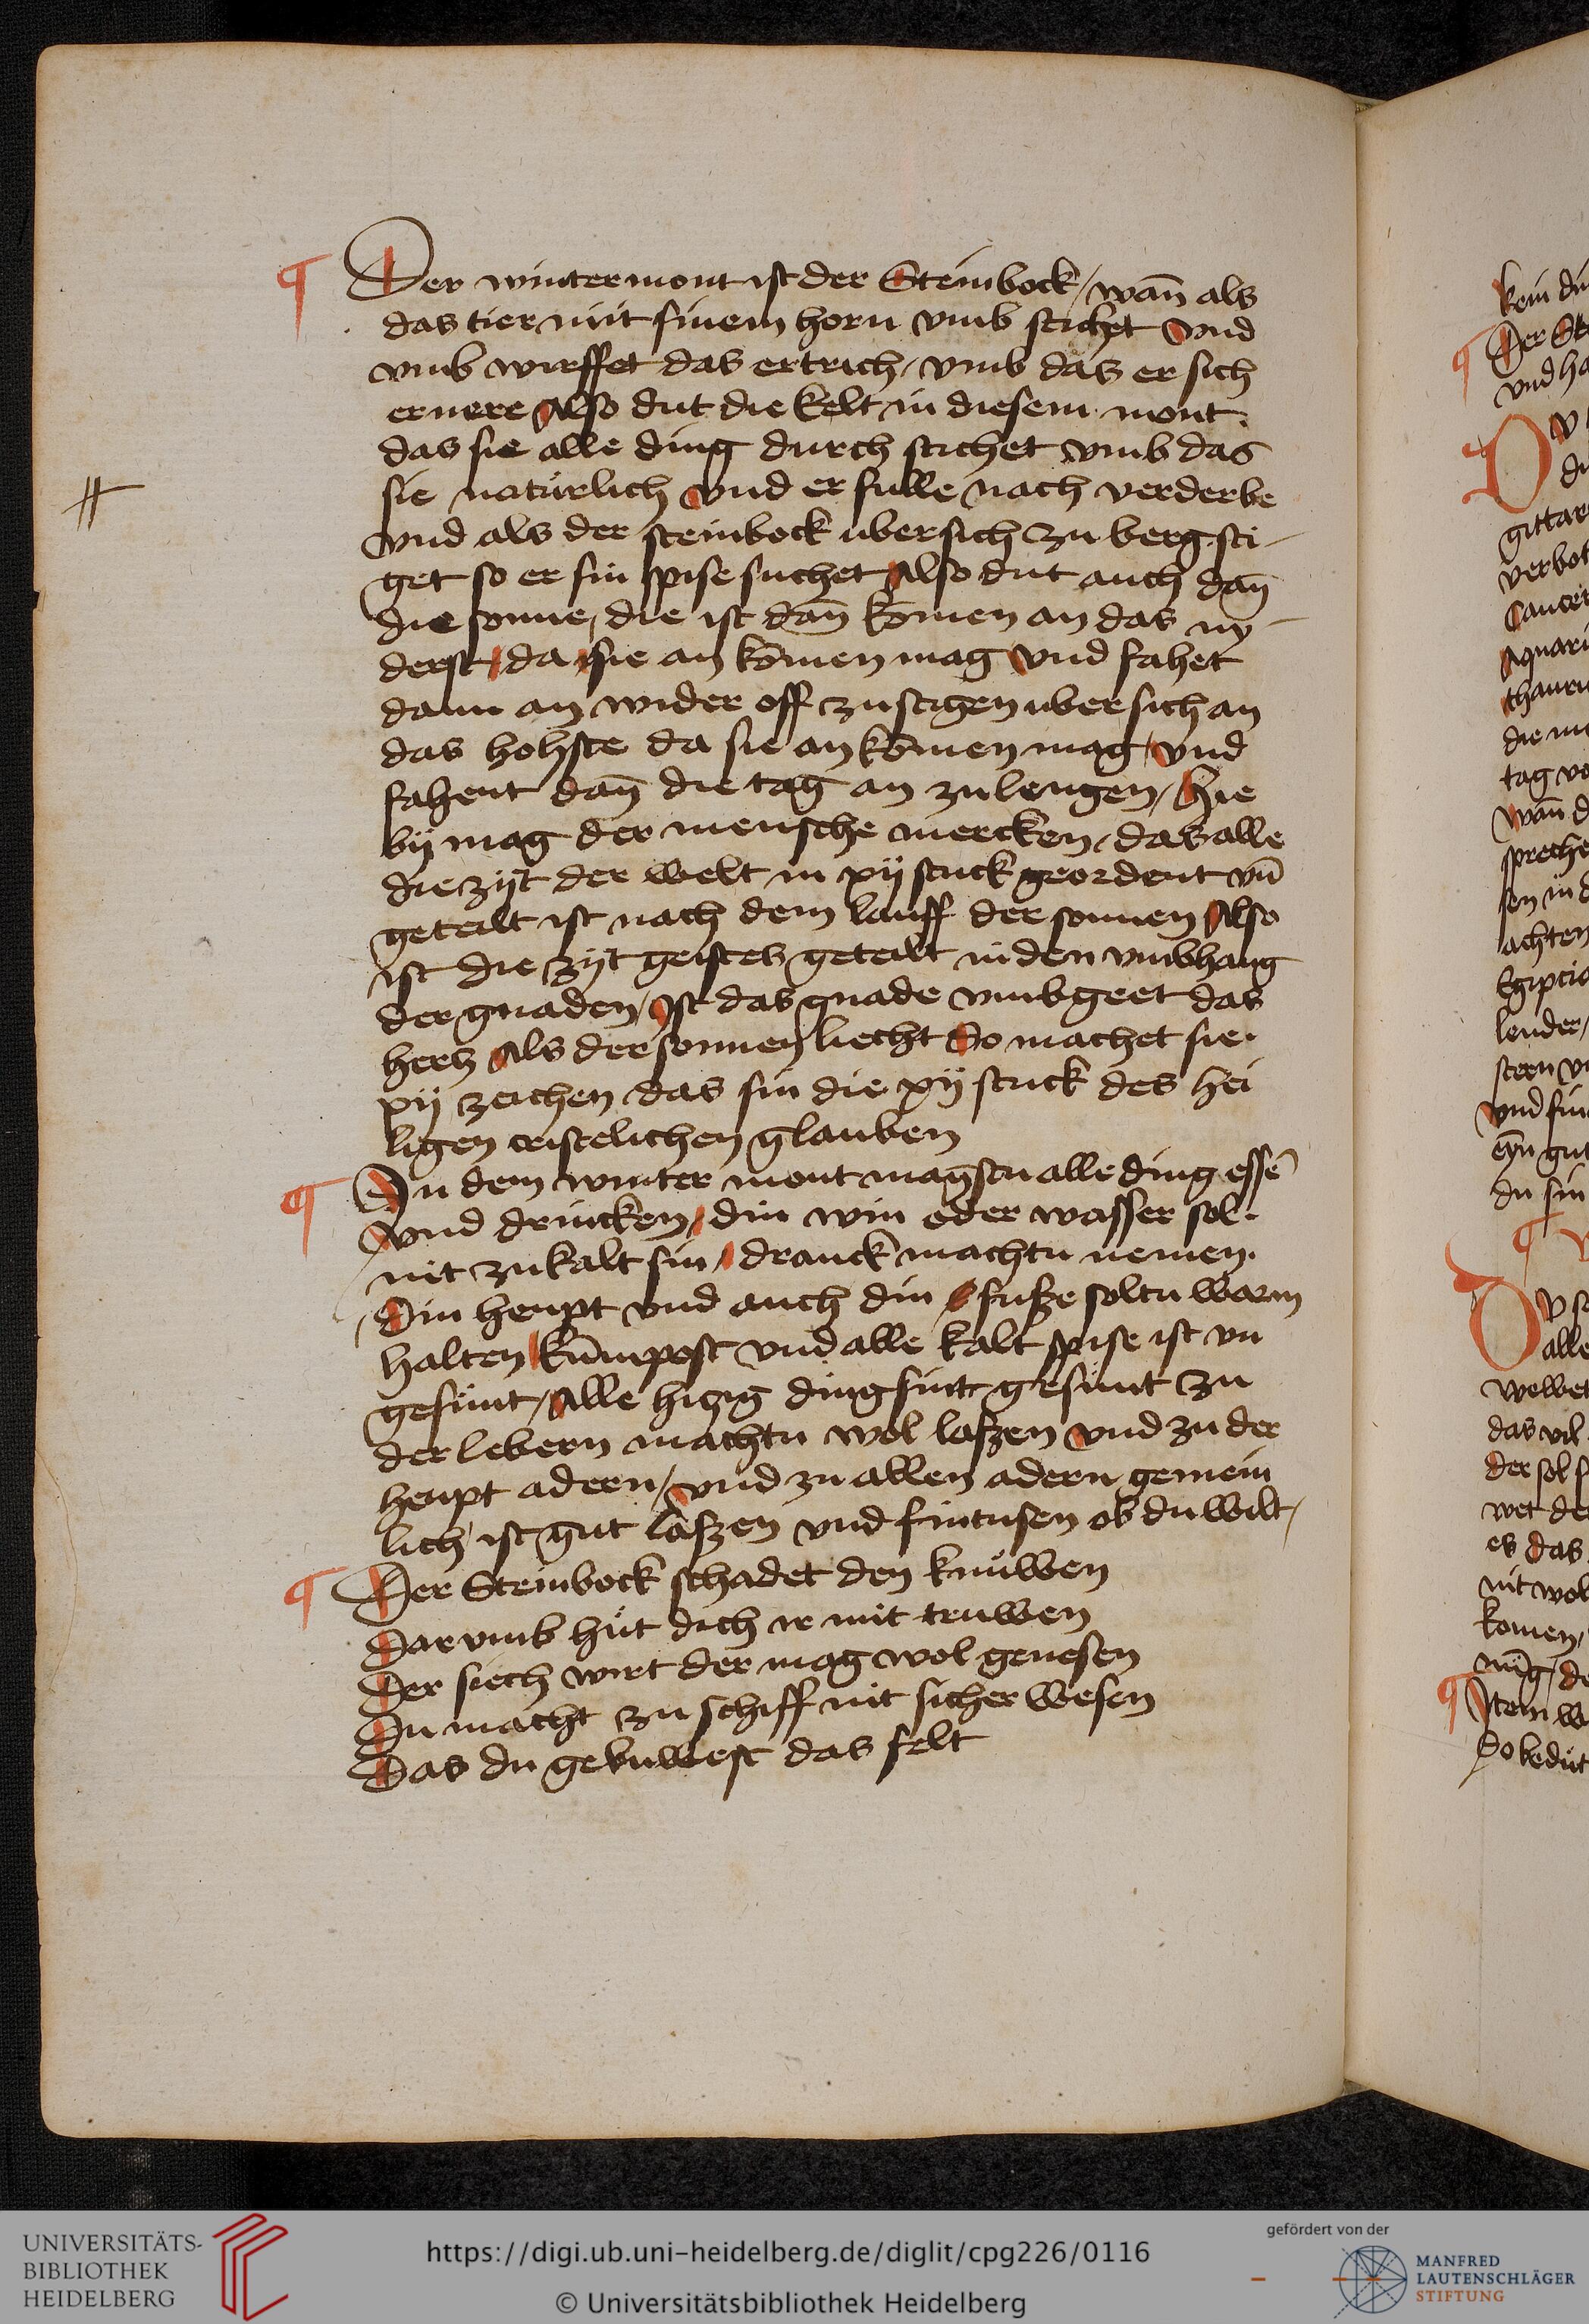 ¶ Der winter mont ist der Steinbock / wañ als
das tier mit sinem horn vmb stichet vnd
vmb wirffet das ertrich / vmb das er sich
ernere Also dut die kelt in diesem mont.
das sie alle ding durch stichet vmb das
sie naturlich vnd er fulle nach verderbe
vnd als der steinbock vber sich zu berg sti-
get so er sin spise suchet Also dut auch dañ
die sonne / die ist dañ komen an das ny-
derst / da sie an komen mag vnd fahet
dann an wider off zu stigen vber sich an
das hohste da sie an komen mag / vnd
fahent dañ die tag an zu lengen / Hie
bij mag der mensche mercken / das alle
die zijt der welt in xij stuck geordent vñ
geteilt ist nach dem lauff der sonnen Also
ist die zijt geistes geteilt in den vmbhang
der gnaden / Ist das gnade vmbgeet das
hertz Als der sonnen liecht So machet sie.
xij zeichen das sin die xij stuck des hei
ligen cristelichen glauben
¶ In dem winter mont magstu alle ding essē
vnd drincken / din win oder wasser sol.
nit zu kalt sin / dranck machtu nemen.
Din heupt vnd auch din fusze soltu warm
halten / Kumpost vnd alle kalt spise ist vn
gesunt / Alle hiczig ding sint gesunt zu
der lebern machtu wol laszen vnd zu der
heupt adern / vnd zu allen adern gemein
lich ist gut laszen vnd fintusen ob du wilt /
¶ Der Steinbock schadet den knuwen
Dar vmb hut dich ir mit truwen
Der siech wirt der mag wol genesen
Du macht zu schiff nit sicher wesen
Das du gebuwest das felt
kein
¶ Der
vnd
gittar
verbot
Cancer
Aquari
thauru
tag
wañ
spreche
achten
Egiptio
lender /
stern
vnd
eyn gut
du sin
alle
das vil
der sol
es das
nit wol
komen /
¶ Item
So bedut
UNIVERSITÄTS-
BIBLIOTHEK
HEIDELBERG
https://digi.ub.uni-heidelberg.de/diglit/cpg226/0116
© Universitätsbibliothek Heidelberg
gefördert von der
MANFRED
LAUTENSCHLÄGER
STIFTUNG